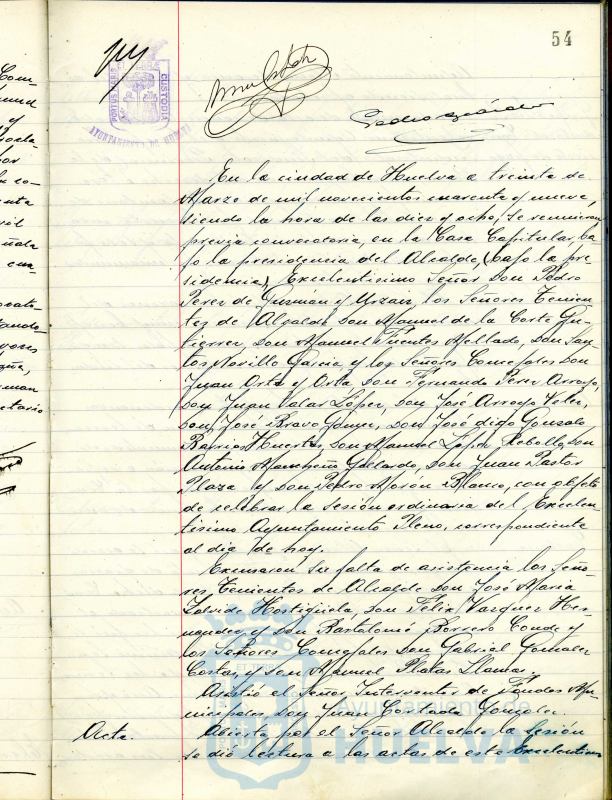 54
PORTUS MARIS
CUSTODIA
AYUNTAMIENTO DE HUELVA
En la ciudad de Huelva a treinta de
Marzo de mil novecientos cuarenta y nueve,
siendo la hora de las diez y ocho, se reunieron
previa convocatoria, en la Casa Capitular, ba-
jo la presidencia del Alcalde (bajo la pre
sidencia) Excelentísimo Señor Don Pedro
Perez de Guzmán y Urzaiz, los Señores Tenien-
tes de Alcalde Don Manuel de la Corte Gu-
tierrez, Don Manuel Fuentes Mellado, Don San-
tos Novillo Garcia y los Señores Concejales Don
Juan Orta y Orta, Don Fernando Perez Arroyo,
Don Juan López, Don José Arroyo
Don José Bravo Gomez, Don José diego Gonzalo
Barrios Huertas, Don Manuel López Rebollo, Don
Antonio Gallardo, Don Juan Pastor
Plaza y Don Pedro Morón Blanco, con objeto
de celebrar la sesión ordinaria del Excelen-
tísimo Ayuntamiento Pleno, correspondiente
al día de hoy.
Excusaron su falta de asistencia los Seño-
res Tenientes de Alcalde Don José María
Hostigüela, Don Felix Vazquez Her-
nandez y Don Bartolomé Borrero Conde y
los Señores Concejales Don Gabriel Gonzalez
Costas, y Don Manuel Platas Llamas.
Asistió el Señor Interventor de Fondos Mu-
nicipales, Don Juan Gonzalez.
Acta.
Abierta por el Señor Alcalde la sesión
se dió lectura a las actas de este Excelentísimo
Ayuntamiento de
HUELVA